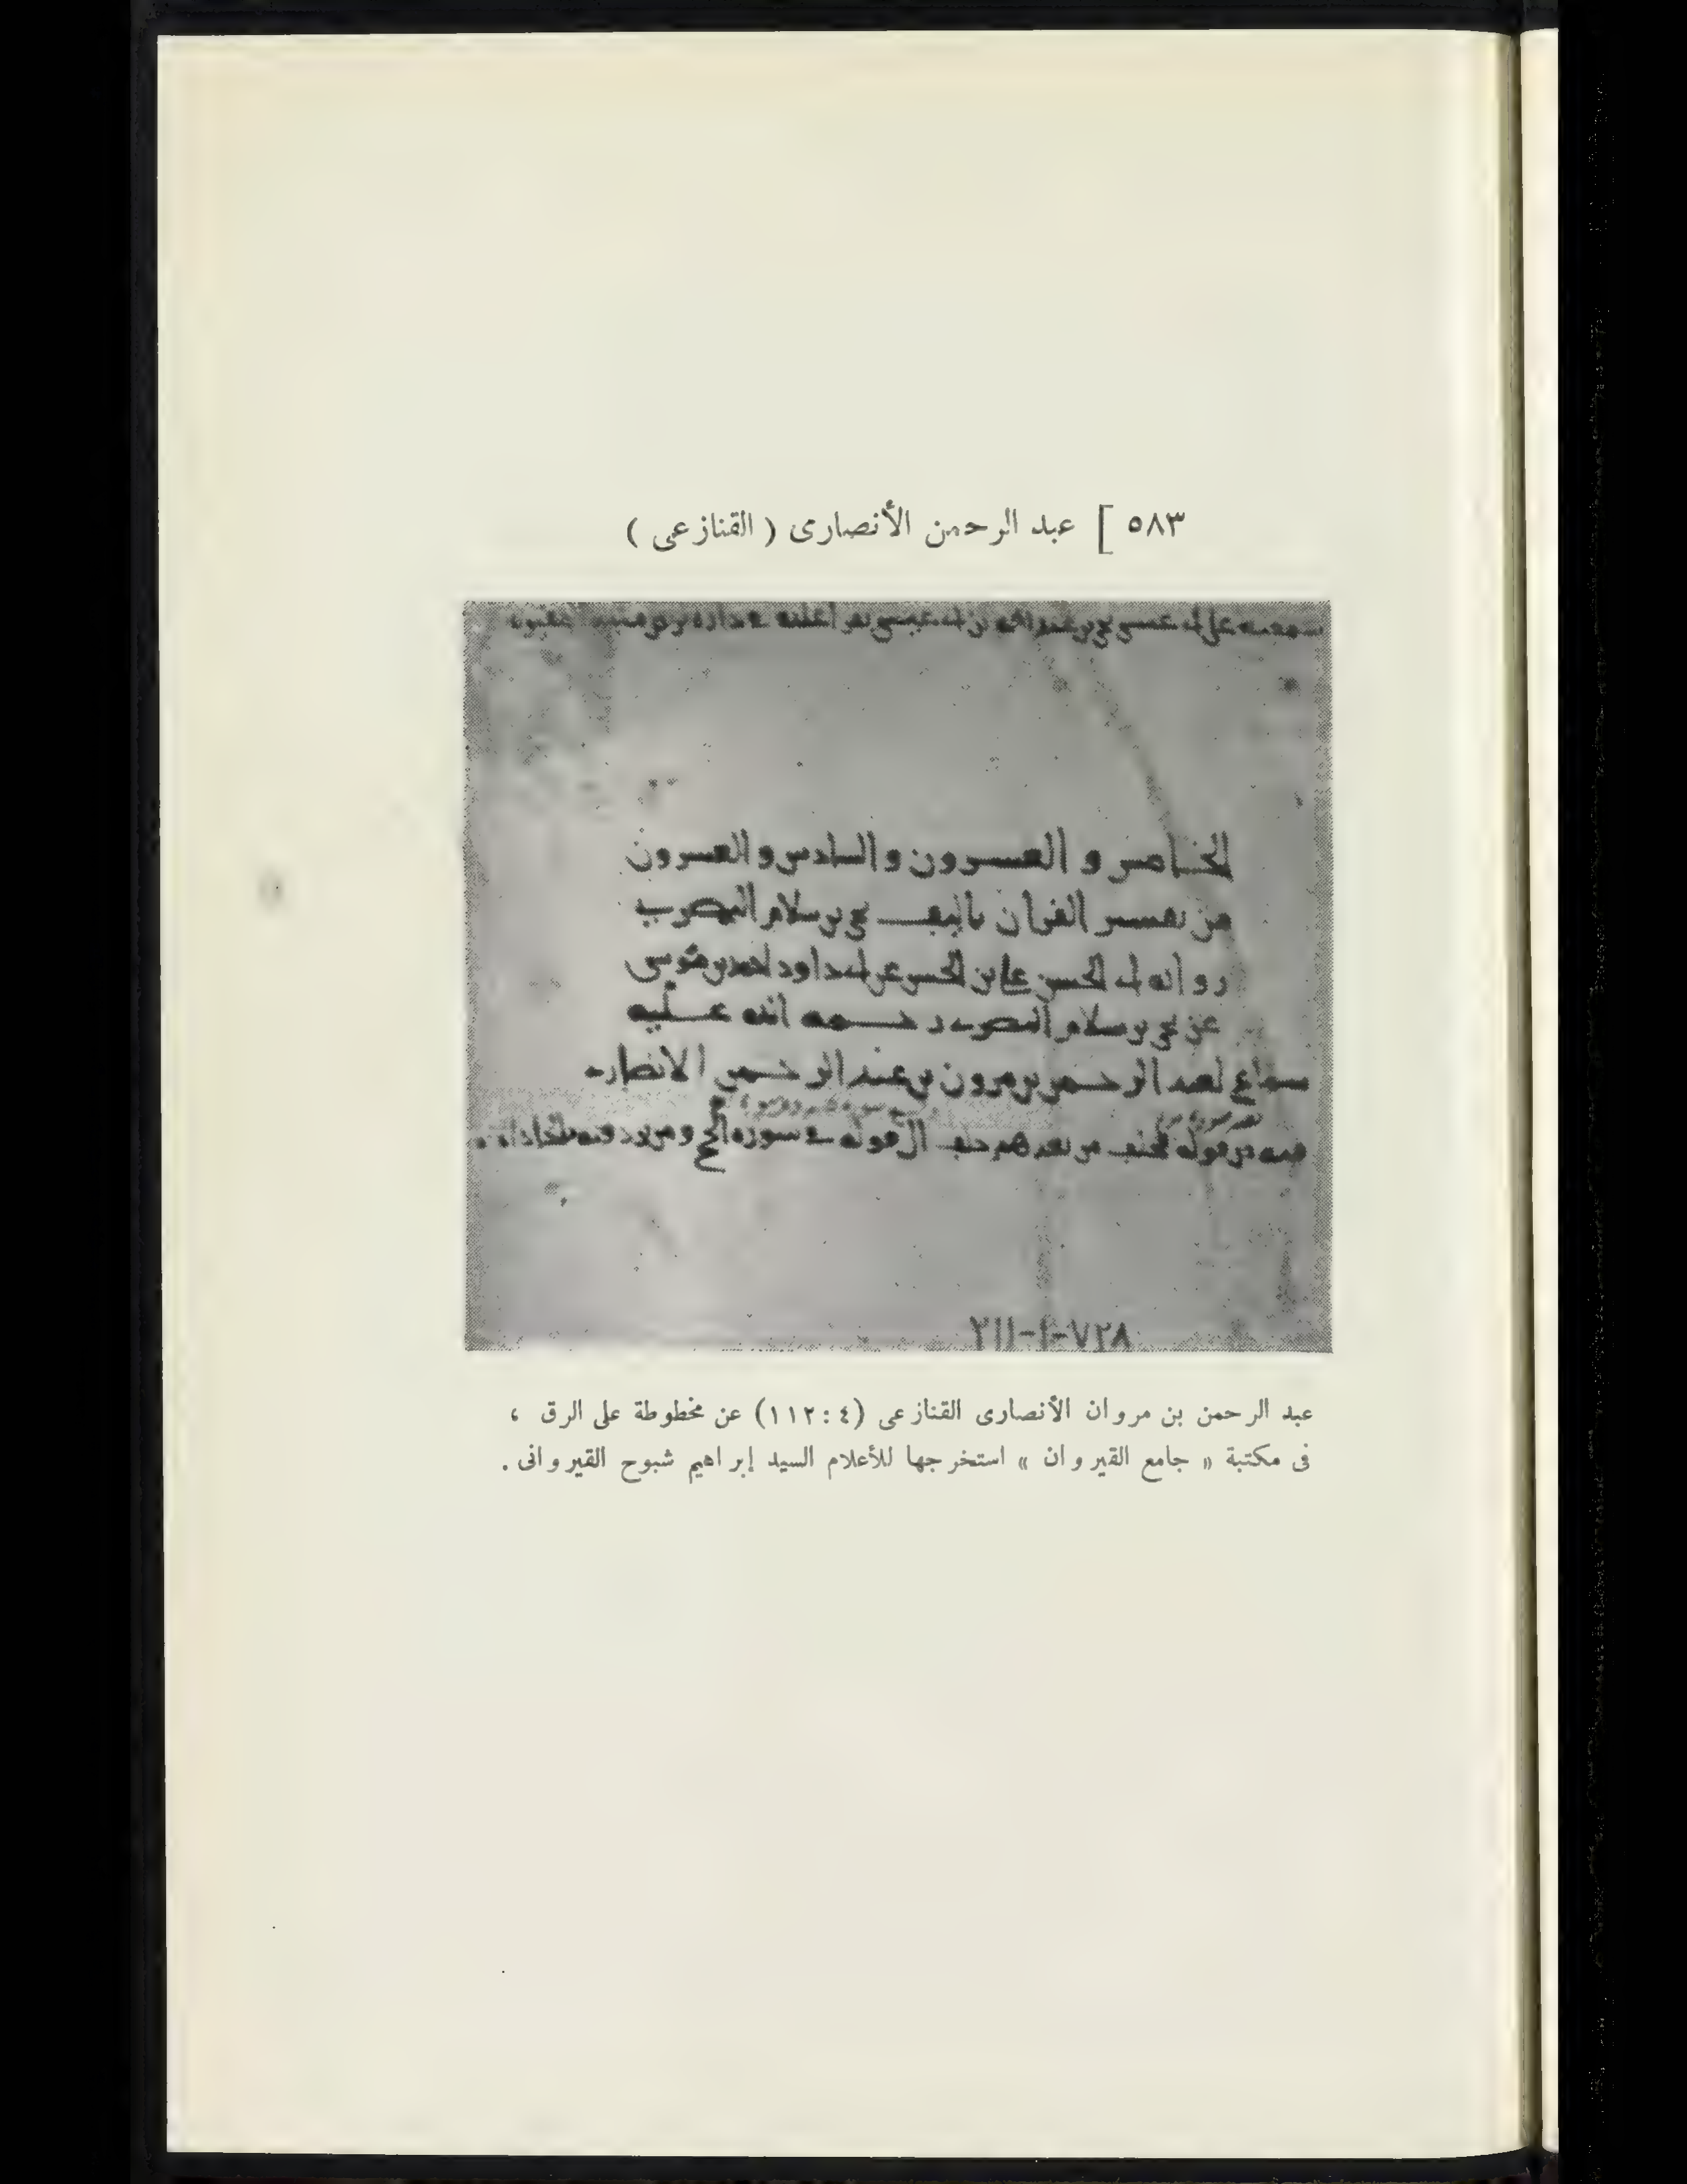 ٥٨٣ ] عبد الرحمن الأنصارى ( القنازعى )
الخامس و العسرون و السادس و العسرون
من تفسير القران تاليف يحيى بن سلام البصرى
رواية ابى الحسن على بن الحسن عن ابى داود احمد بن موسى
عن يحيى بن سلام البصرى رحمه الله عليه
سماع لعبد الرحمن بن مرون بن عبد الرحمن الانصارى
فيه من قوله فخلف من بعدهم خلف الى قوله فى سورة الحج ومن يرد فيه بالحاد
عبد الرحمن بن مروان الأنصارى القنازعى (٤ : ١١٢) عن مخطوطة على الرق ،
فى مكتبة « جامع القيروان » استخرجها للأعلام السيد إبراهيم شبوح القيروانى .